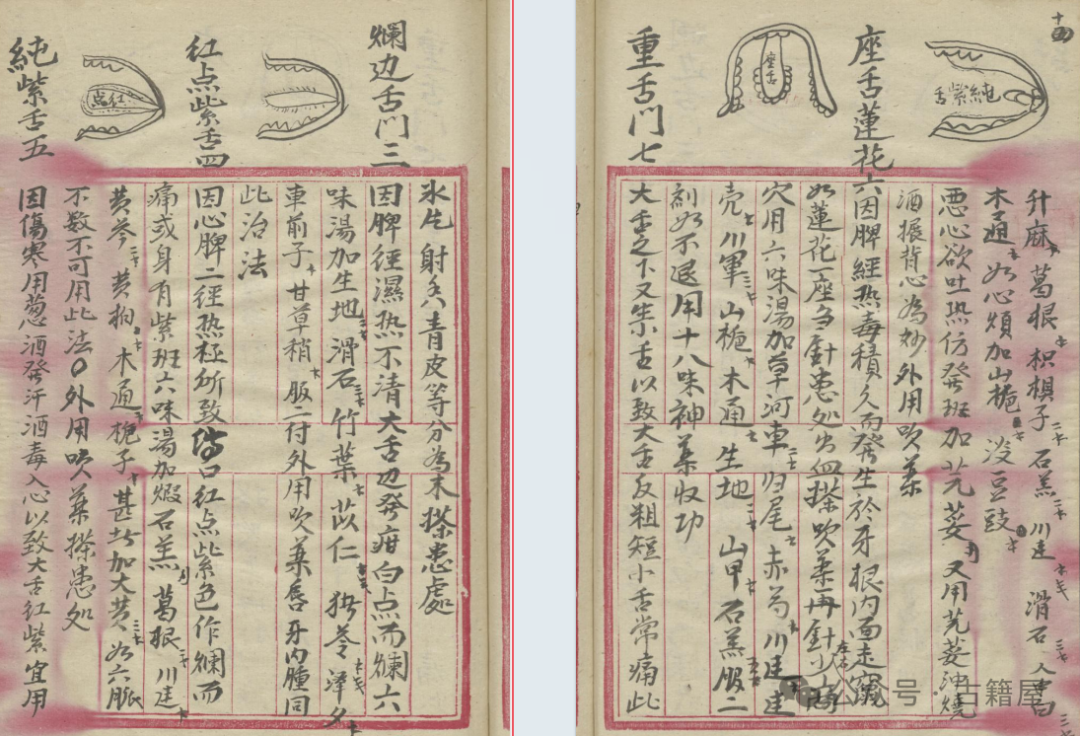 冰片 射香 青皮等分為末搽患處
爛边舌門三
因脾經濕热不清大舌边發疳白点而爛六
味湯加生地 滑石 竹葉 苡仁 猪苓 澤夕
車前子 甘草稍 服二付外用吹薬唇牙内腫同
此治法
红点紫舌四
红点
因心脾二經热極所致 口红点紫色作爛而
痛或身有紫班六味湯加煅石羔 葛根 川連
黄芩 黄柏 木通 梔子 甚者加大黄 如六脈
不数不可用此法〇外用吹薬搽患处
純紫舌五
因傷寒用葱酒發汗酒毒入心以致大舌红紫宜用
十四
純紫舌
升麻 葛根 枳椇子 石羔 川連 滑石 人中白
木通 如心煩加山梔 淡豆豉
悪心欲吐恐仿發班加芫荽 又用芫荽沖燒
酒搌背心為妙 外用吹薬
座舌蓮花六
座舌
因脾經熱毒積久而發生於牙根内面走竄
如蓮花一座多針患处出血搽吹薬再針少商
穴用六味湯加草河車 归尾 赤芍 川連 連
壳 川軍 山梔 木通 生地 山甲 石羔服二
剂如不退用十八味神薬收功
重舌門七
大舌之下又生小舌以致大舌反粗短小舌常痛此
公众号·古籍屋